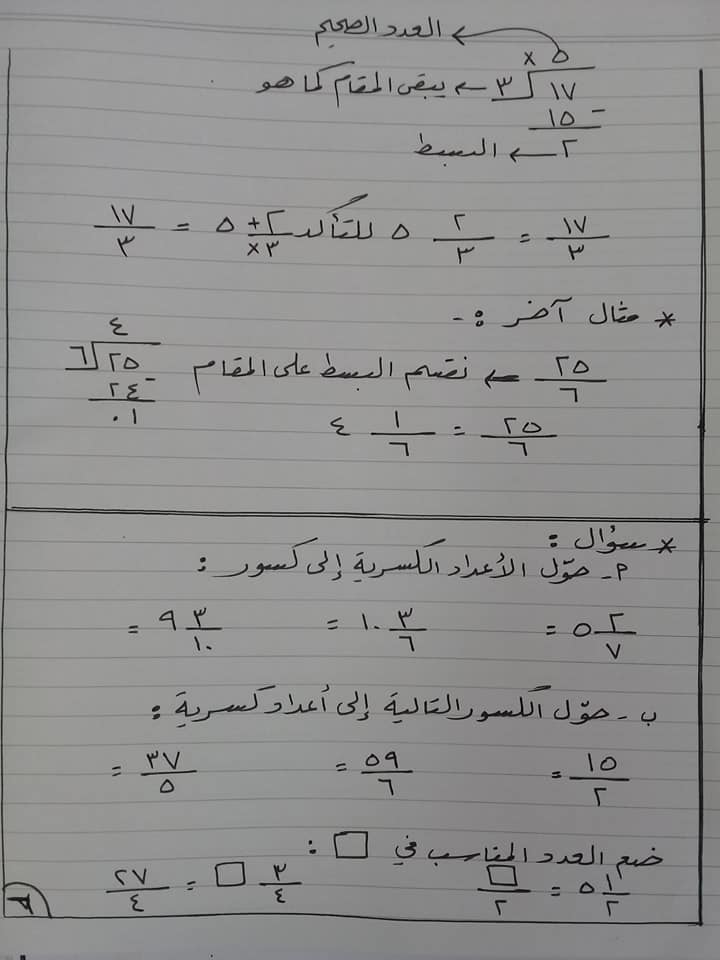 العدد الصحيح ←
× ٥
٣ ← يبقى المقام كما هو ١٧
١٥ −
٢ ← البسط
١٧/٣ = ٥ ٢/٣ للتأكد ٥ +٢/×٣ = ١٧/٣
* مثال آخر :-
٢٥/٦ ← نقسم البسط على المقام
٤
٦ ٢٥
٢٤ −
٠١
٢٥/٦ = ٤ ١/٦
* سؤال :
أ- حوّل الأعداد الكسرية إلى كسور :
٥ ٢/٧ = ١٠ ٣/٦ = ٩ ٣/١٠ =
ب- حوّل الكسور التالية إلى أعداد كسرية :
١٥/٢ = ٥٩/٦ = ٣٧/٥ =
ضع العدد المناسب في □ :
٥ ١/٢ = □/٢ □ ٣/٤ = ٢٧/٤